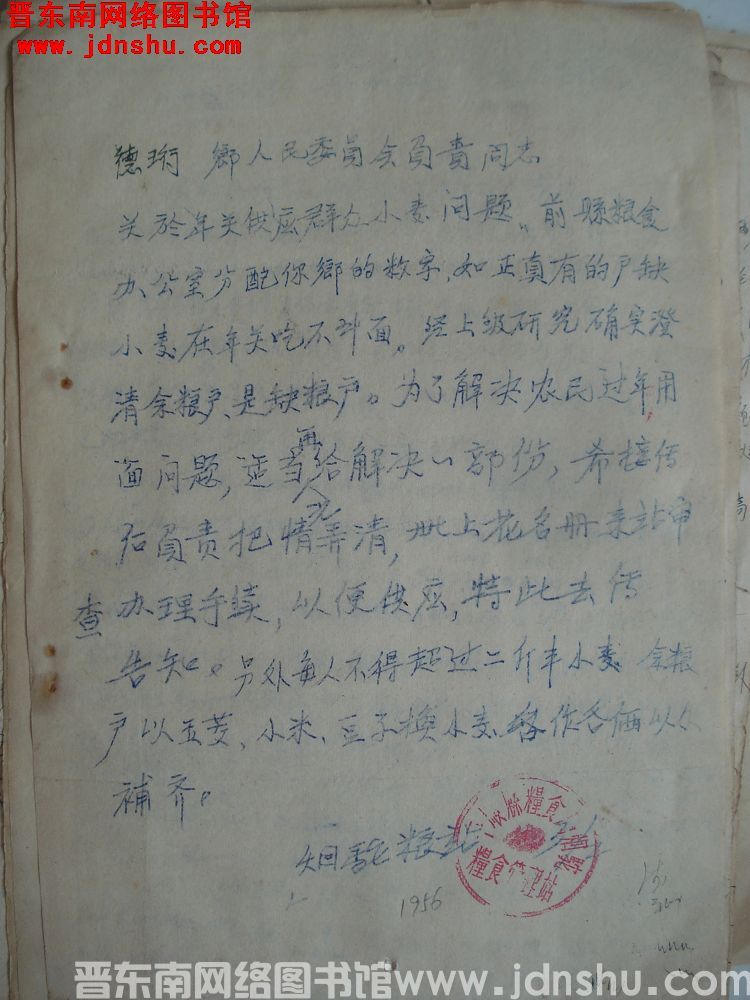 晋东南网络图书馆
www.jdnshu.com
德珩 鄉人民委员会負責同志
关於年关供应群众小麦问题，前縣粮食
办公室分配你鄉的数字，如正真有的戶缺
小麦在年关吃不斗面。经上级研究确实澄
清余粮戶、是缺粮戶。为了解决农民过年用
面问题，适当再给解决一部份，希接传
后負责把情况弄清，造上花名册来站审
查办理手续，以便供应，特此去传
告知。另外每人不得超过二斤半小麦 余粮
戶以玉茭、小米、豆子換小麦
補齐。
粮站
糧食
糧食管理站
1956
晋东南网络图书馆www.jdnshu.com